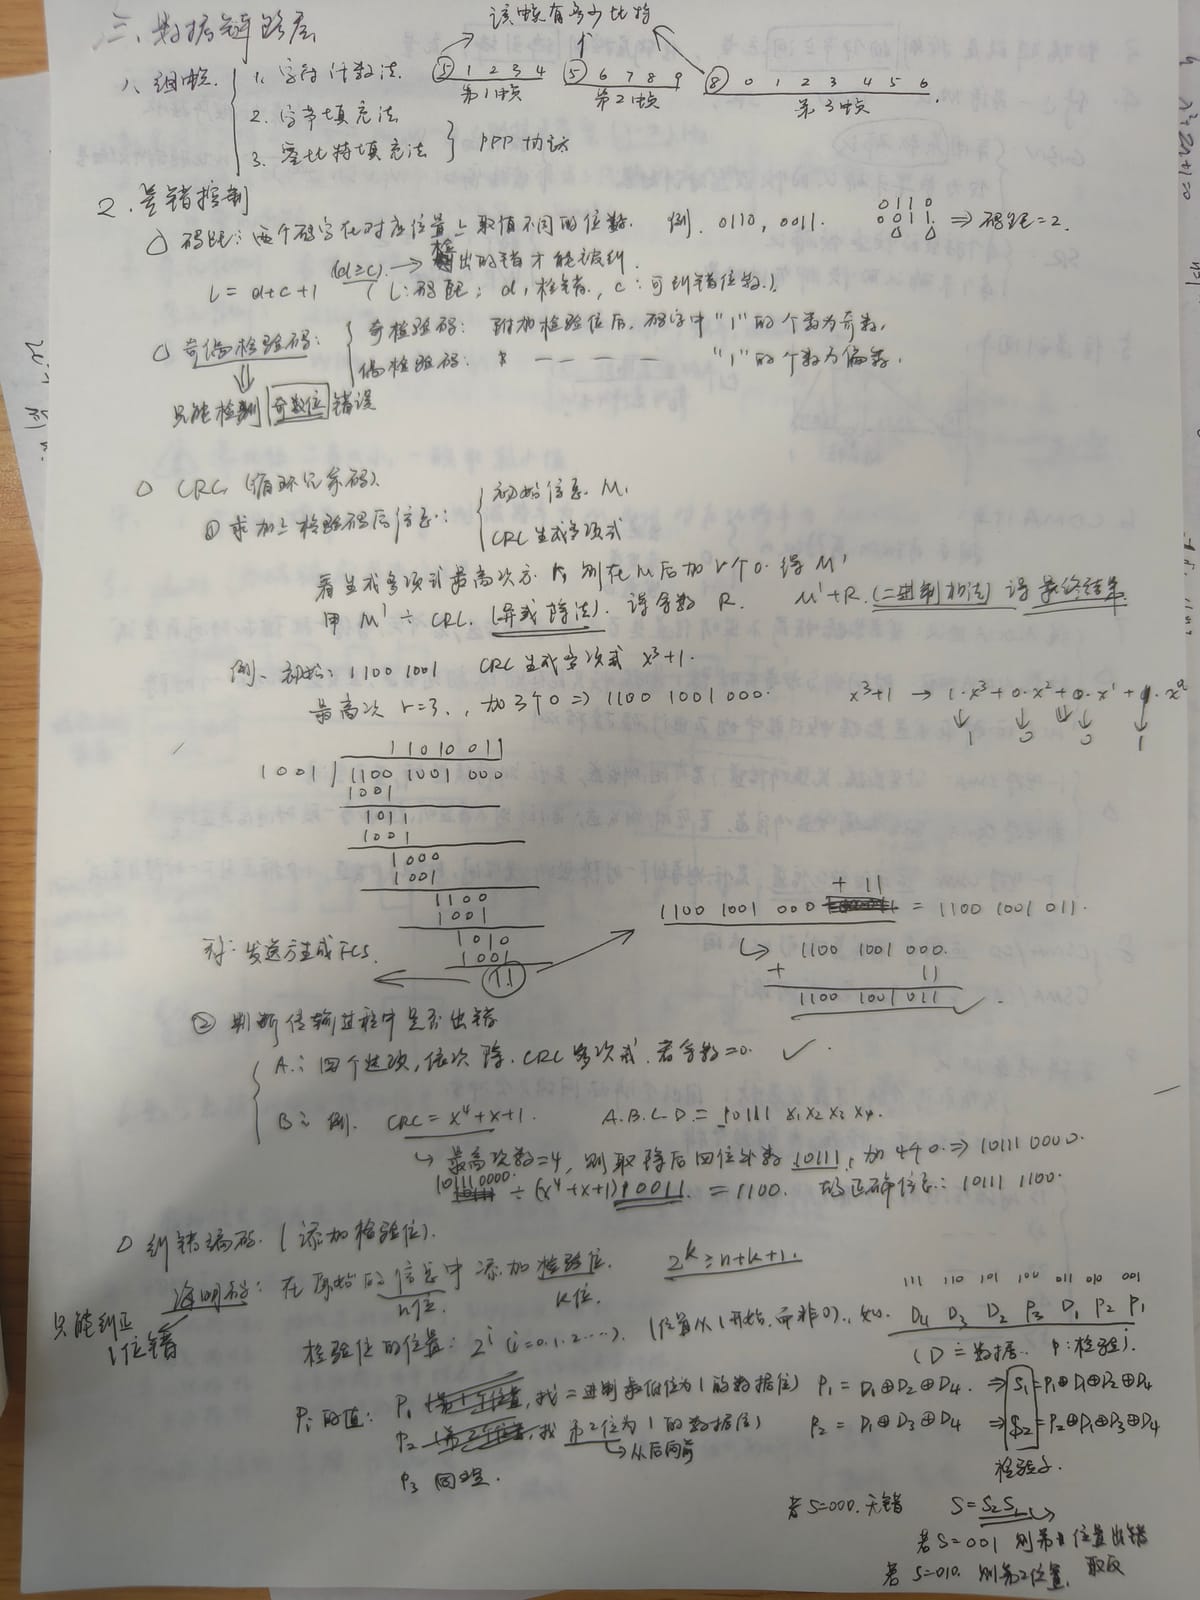 三、数据链路层
该帧有多少比特
1、组帧
1. 字符计数法.
⑤ 1 2 3 4 ⑤ 6 7 8 9 ⑧ 0 1 2 3 4 5 6
第1帧 第2帧 第3帧
2. 字节填充法
3. 零比特填充法 } PPP协议
2. 差错控制
码距: 两个码字在对应位置上取值不同的位数. 例. 0110, 0011.
0110
0011 ⇒ 码距=2.
(d≥c) → 检出的错才能被纠.
L = d+c+1 ( L:码距; d:检错, c:可纠错位数.)
奇偶检验码:
奇检验码: 附加检验位后, 码字中"1"的个数为奇数.
偶检验码: — — — — "1"的个数为偶数.
只能检测 奇数位 错误
CRC (循环冗余码)
① 求加上检验码后信息:
初始信息 M.
CRC 生成多项式
看生成多项式最高次方 r, 则在M后加r个0. 得 M'
用 M' ÷ CRC. (异或除法). 得余数 R. M'+R. (二进制加法) 得最终结果
例、初始: 1100 1001 CRC生成多项式 x³+1.
最高次 r=3., 加3个0 ⇒ 1100 1001 000.
x³+1 → 1·x³ + 0·x² + 0·x¹ + 1·x⁰
1 0 0 1
11010011
1001 1100 1001 000
1001
1011
1001
1000
1001
1100
1001
1010
1001
11
发送方生成FCS.
+ 11
1100 1001 000 = 1100 1001 011.
1100 1001 000.
+ 11
1100 1001 011
② 判断传输过程中是否出错
A: 四个选项, 依次除. CRC多项式. 若余数=0. ✓.
B: 例. CRC = x⁴+x+1. A.B.C.D = 10111 x₁x₂x₃x₄.
最高次数=4, 则取除后四位外数 10111, 加4个0 ⇒ 10111 0000.
10111 0000. ÷ (x⁴+x+1) 10011. = 1100. 故正确信息: 10111 1100.
纠错编码. (添加检验位).
海明码: 在原始的信息中添加检验位. 2^k ≥ n+k+1.
n位. k位.
只能纠正
1位错
检验位的位置: 2^i (i=0.1.2……). (位置从1开始, 而非0), 如.
111 110 101 100 011 010 001
D₄ D₃ D₂ P₃ D₁ P₂ P₁
(D: 数据. P: 检验).
Pᵢ的值: P₁ 找二进制最低位为1的数据位) P₁ = D₁⊕D₂⊕D₄. ⇒ S₁=P₁⊕D₁⊕D₂⊕D₄
P₂ 找第2位为1的数据位) P₂ = D₁⊕D₃⊕D₄ ⇒ S₂=P₂⊕D₁⊕D₃⊕D₄
从后向前
检验子.
P₃ 同理.
若S=000. 无错
若S=001 则第1位置出错
若S=010. 则第2位置, 取反